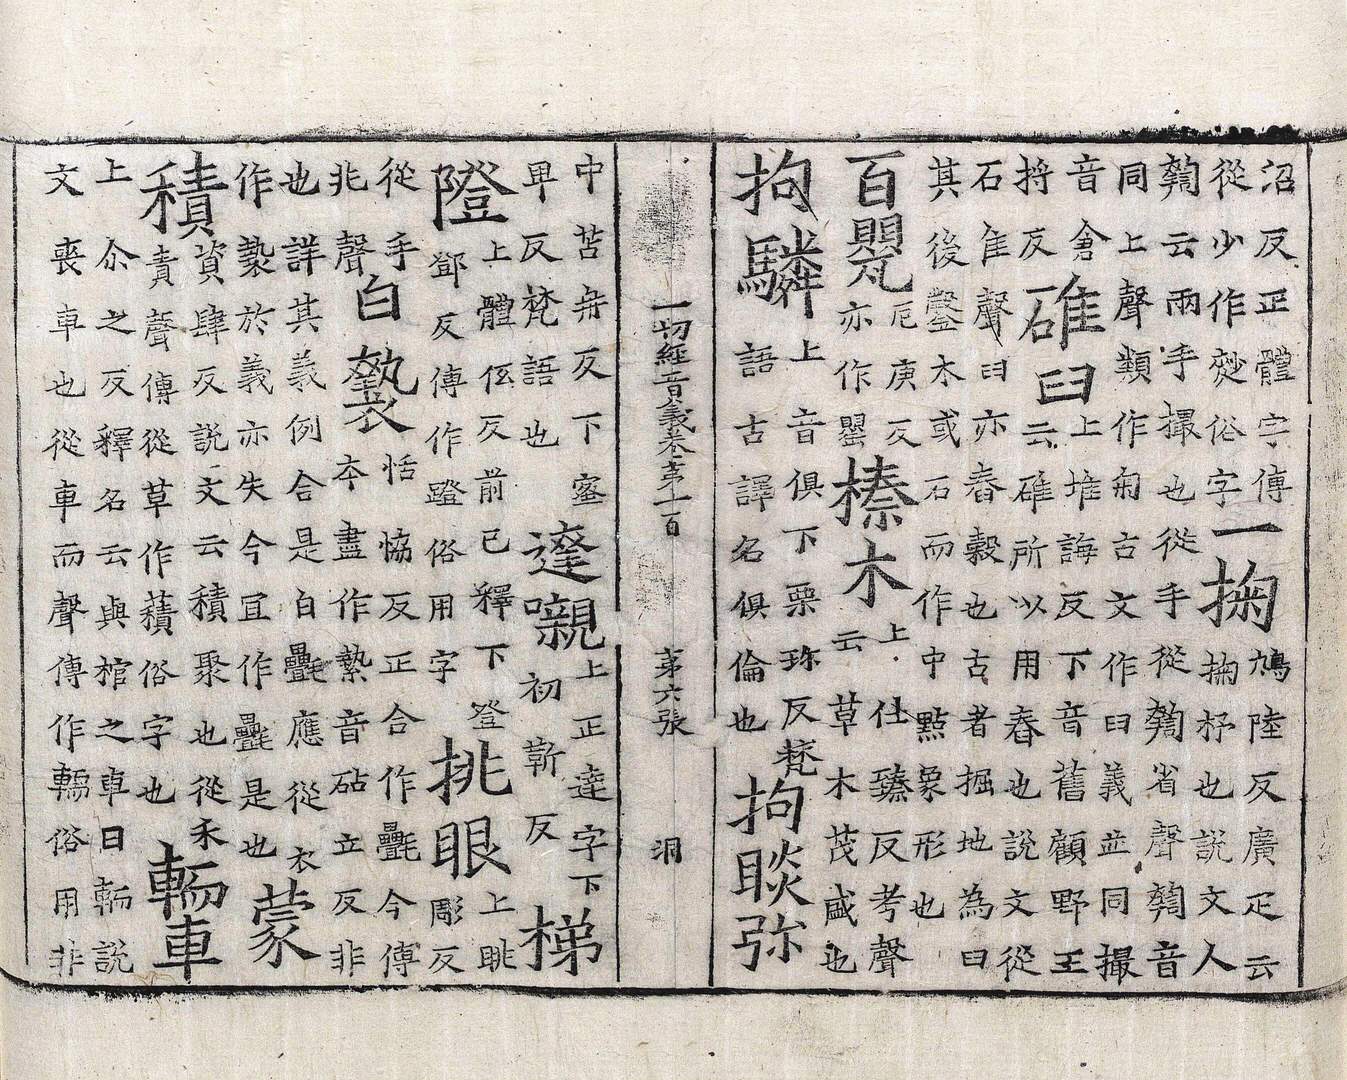 沼反正體字傳
從少作𤆀俗字
一掬
鳩陸反廣疋云
掬抒也說文人
云兩手撮也從手從省聲音
同上聲類作匊古文作臼義並同撮
音倉
將反
碓臼
上堆誨反下音舊顧野王
云碓所以用舂也說文從
石隹聲臼亦舂穀也古者掘地為臼
其後鑿木或石而作中點象形也
百甖
戹庚反
亦作罌
榛木
上仕臻反考聲
云草木茂盛也
拘驎
上音俱下栗珎反梵
語古譯名俱倫也
拘睒弥
一切經音義卷第一百 第六張 洞
中苫冉反下蜜
卑反梵語也
達嚫
上正達字下
初靳反
梯
隥
上體伭反前已釋下登
鄧反傳作蹬俗用字
挑眼
上眺
彫反
從手
兆聲
白褺
恬協反正合作㲲今傳
夲盡作褺音砧立反非
也詳其義例合是白㲲應從衣
作褺於義亦失今冝作㲲是也
蒙
積
資肆反說文云積聚也從禾
責聲傳從草作䔣俗字也
轜車
上尒之反釋名云與棺之車曰輀說
文喪車也從車而聲傳作轜俗用非